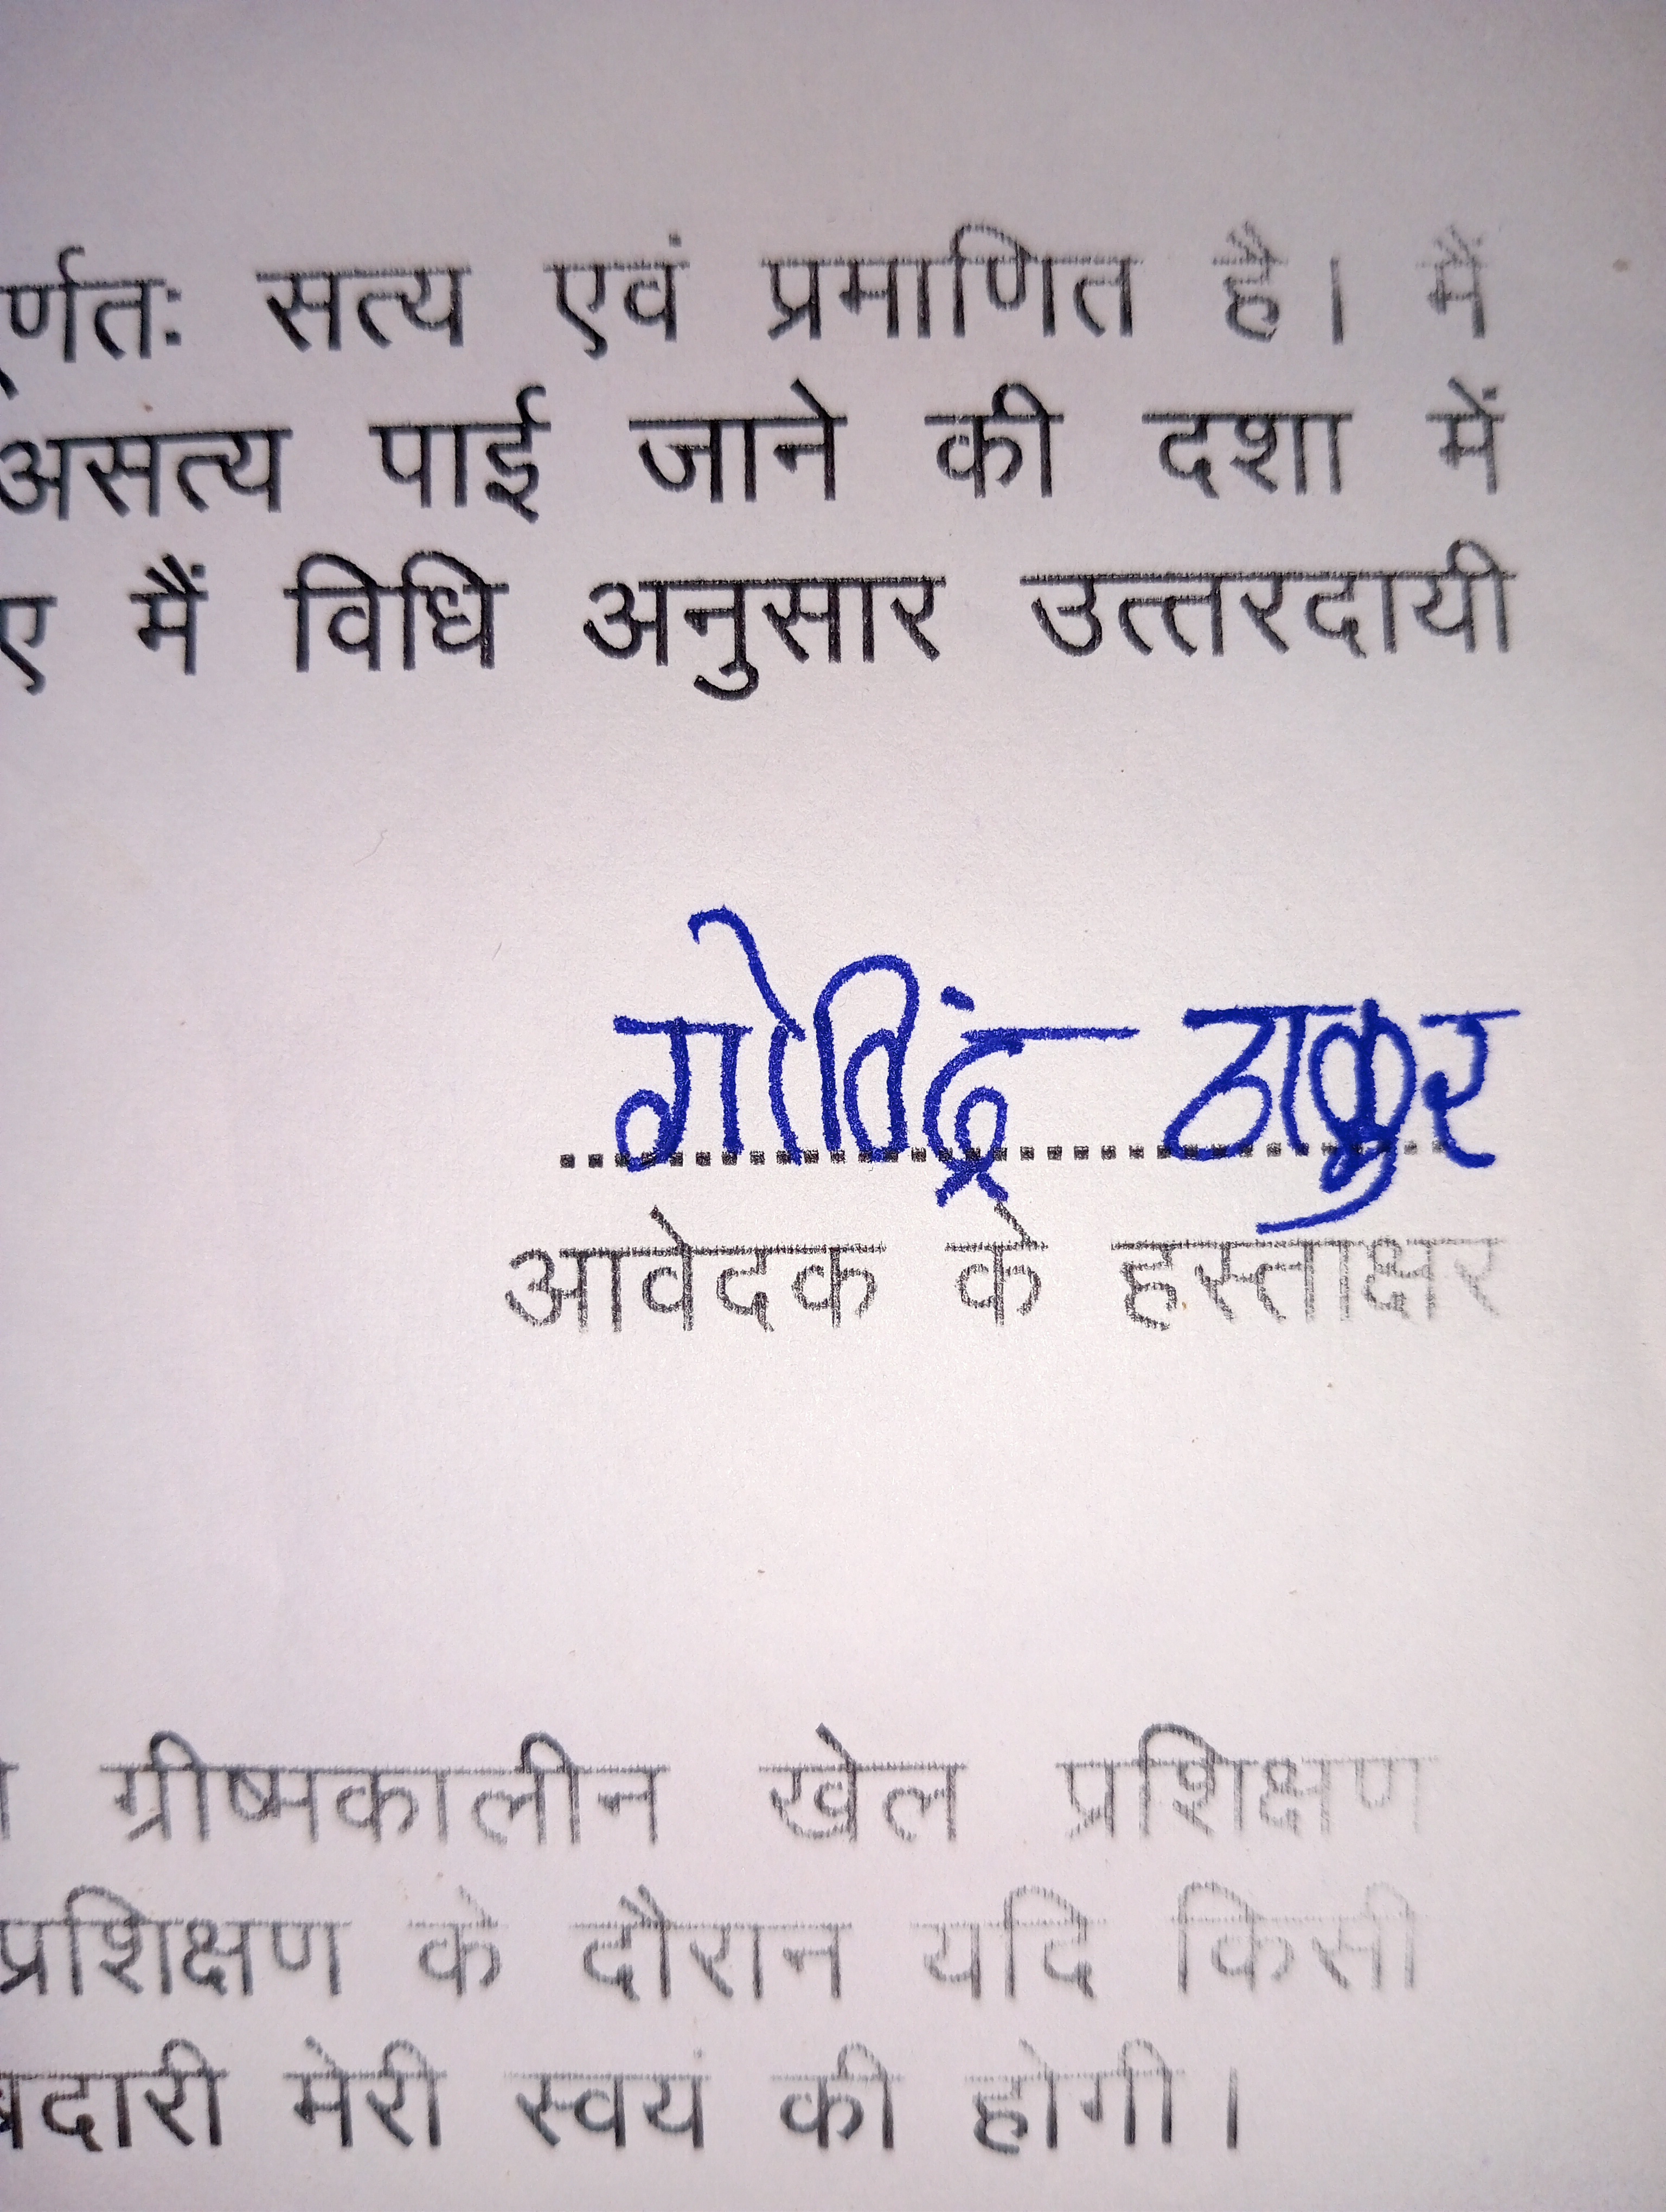 र्णतः सत्य एवं प्रमाणित है। मैं
असत्य पाई जाने की दशा में
ए मैं विधि अनुसार उत्तरदायी
गोविंद्र ठाकुर
आवेदक के हस्ताक्षर
ग्रीष्मकालीन खेल प्रशिक्षण
प्रशिक्षण के दौरान यदि किसी
बदारी मेरी स्वयं की होगी।